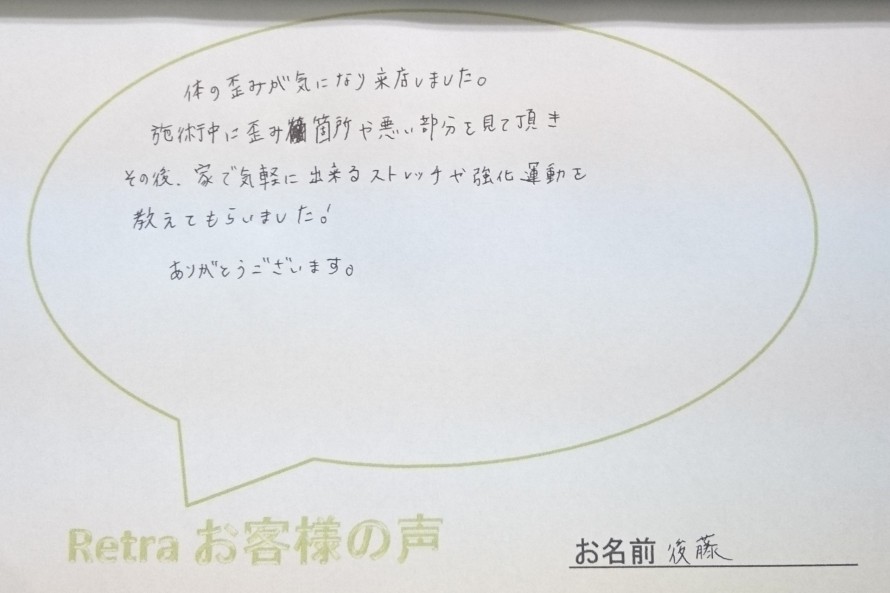 体の歪みが気になり来店しました。
施術中に歪み箇所や悪い部分を見て頂き
その後、家で気軽に出来るストレッチや強化運動を
教えてもらいました!
ありがとうございます。
Retra お客様の声
お名前 後藤